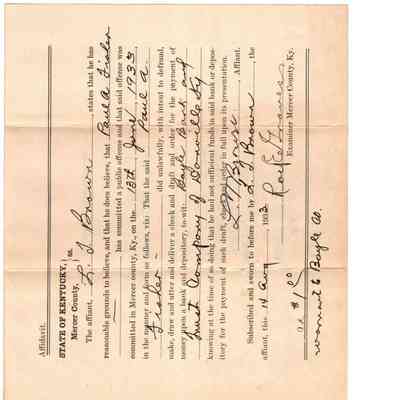 Affidavit.
STATE OF KENTUCKY, } ss.
Mercer County,
The affiant, L. J. Brown, states that he has
reasonable grounds to believe, and that he does believe, that Paul A. Fisher
has committed a public offense and that said offense was
committed in Mercer county, Ky., on the 13th, June, 1933
in the manner and form as follows, viz: That the said Paul A.
Fisher did unlawfully, with intent to defraud,
make, draw and utter and deliver a check and draft and order for the payment of
money upon a bank and depository, to-wit: Boyle Bank and
Trust Company of Danville Ky
knowing at the time of so doing that he had not sufficient funds in said bank or depos-
itory for the payment of such draft, check and order in full upon its presentation.
Affiant.
Subscribed and sworn to before me by L. J. Brown, the
affiant, this 14 Aug, 1933.
Examiner Mercer County, Ky.
$1.00
warrant to Boyle Co.